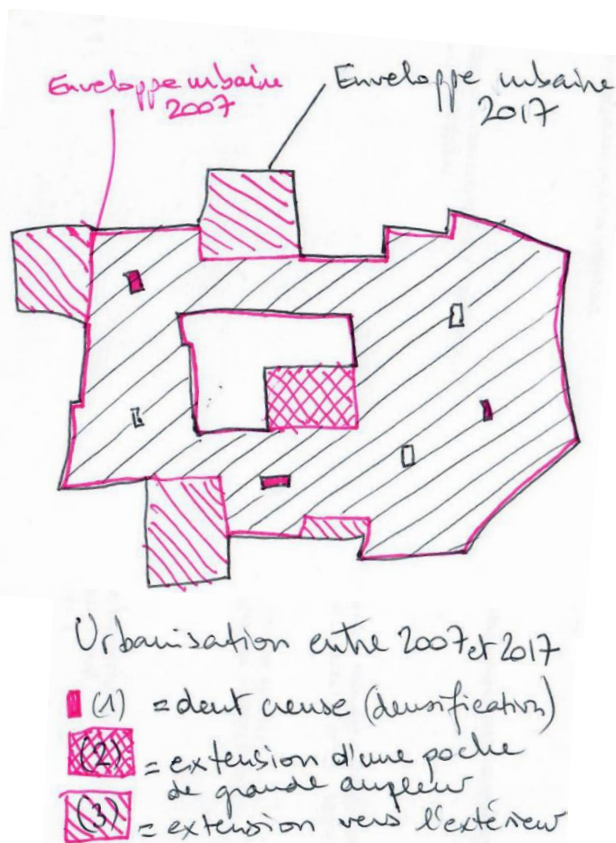 Enveloppe urbaine
2007
Enveloppe urbaine
2017
Urbanisation entre 2007 et 2017
(1) = dent creuse (densification)
(2) = extension d'une poche
de grande ampleur
(3) = extension vers l'extérieur